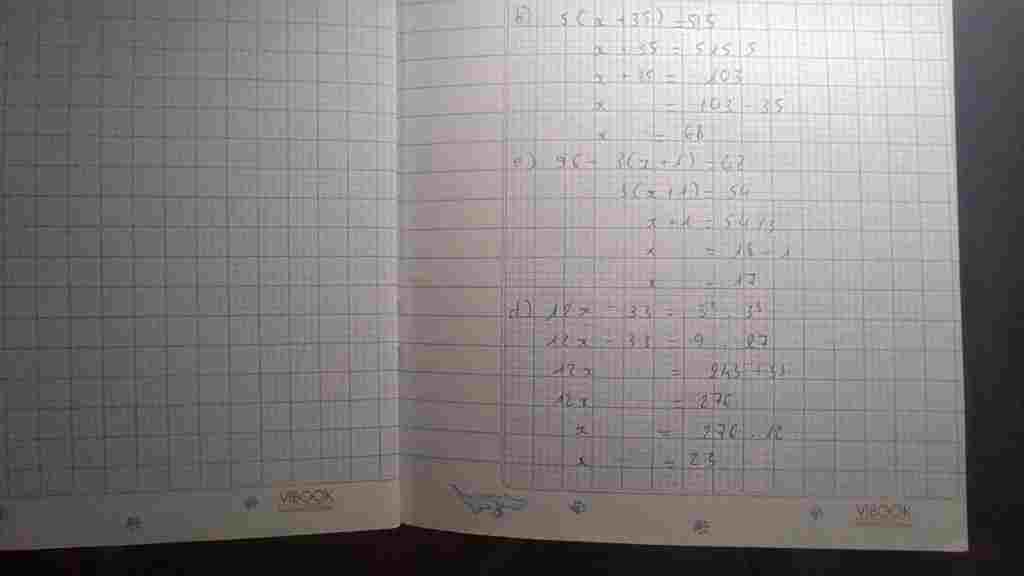 b) 5(x + 35) = 515
x + 35 = 515 : 5
x + 35 = 103
x = 103 - 35
x = 68
c) 96 - 3(x + 1) = 42
3(x + 1) = 54
x + 1 = 54 : 3
x = 18 - 1
x = 17
d) 12x - 33 = 3² . 3³
12x - 33 = 9 . 27
12x = 243 + 33
12x = 276
x = 276 : 12
x = 23
VIBOOK
VIBOOK